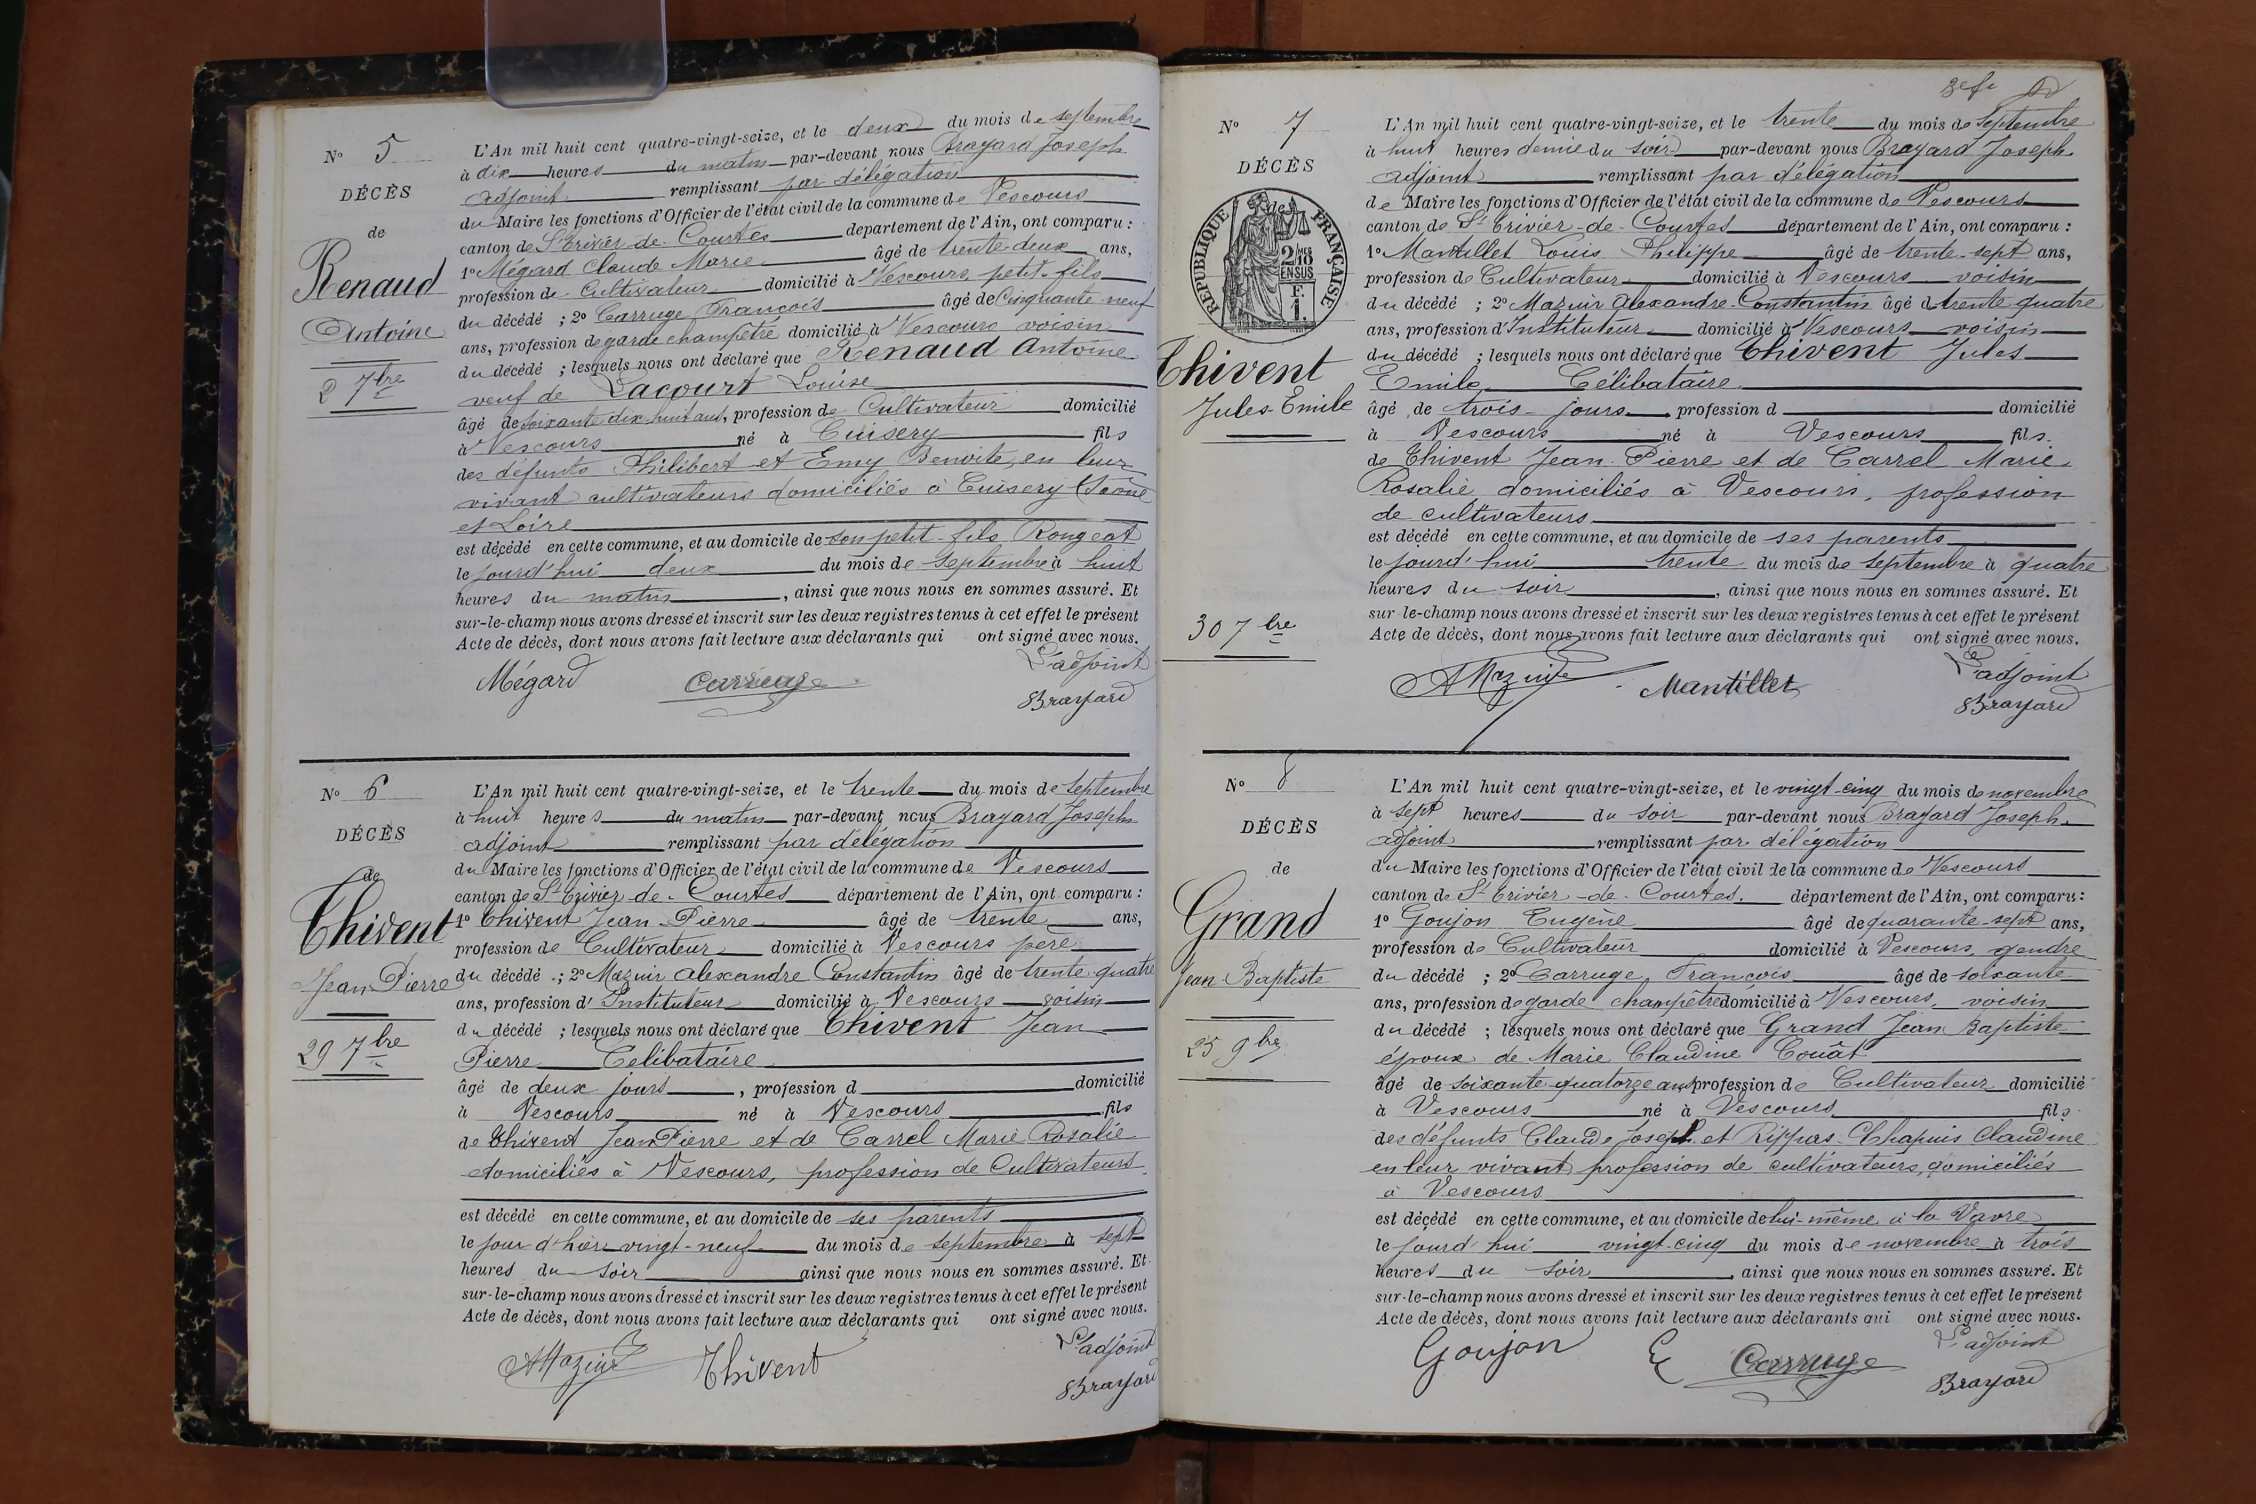 Nº 5
DÉCÈS
de
Renaud
Antoine
2 7bre
L'An mil huit cent quatre-vingt-seize, et le deux du mois de septembre
à dix heures du matin par-devant nous Brayard Joseph
adjoint remplissant par délégation
du Maire les fonctions d'Officier de l'état civil de la commune de Vescours
canton de St Trivier-de-Courtes département de l'Ain, ont comparu :
1º Mégard Claude Marie âgé de trente-deux ans,
profession de Cultivateur domicilié à Vescours petit-fils
du décédé ; 2º Carruge François âgé de Cinquante-neuf
ans, profession de garde champêtre domicilié à Vescours voisin
du décédé ; lesquels nous ont déclaré que Renaud Antoine
veuf de Lacourt Louise
âgé de soixante dix-huit ans, profession de Cultivateur domicilié
à Vescours né à Cuisery fils
des défunts Philibert et Emy Benoite, en leur
vivant cultivateurs domiciliés à Cuisery (Saône
et Loire
est décédé en cette commune, et au domicile de son petit-fils Rongeat
le jourd'hui deux du mois de septembre à huit
heures du matin, ainsi que nous nous en sommes assuré. Et
sur-le-champ nous avons dressé et inscrit sur les deux registres tenus à cet effet le présent
Acte de décès, dont nous avons fait lecture aux déclarants qui ont signé avec nous.
L'adjoint
Mégard Carruge Brayard
Nº 6
DÉCÈS
de
Thivent
Jean Pierre
29 7bre
L'An mil huit cent quatre-vingt-seize, et le trente du mois de septembre
à huit heures du matin par-devant nous Brayard Joseph
adjoint remplissant par délégation
du Maire les fonctions d'Officier de l'état civil de la commune de Vescours
canton de St Trivier-de-Courtes département de l'Ain, ont comparu :
1º Thivent Jean-Pierre âgé de trente ans,
profession de Cultivateur domicilié à Vescours père
du décédé ; 2º Mazuir Alexandre Constantin âgé de trente-quatre
ans, profession d'Instituteur domicilié à Vescours voisin
du décédé ; lesquels nous ont déclaré que Thivent Jean
Pierre Celibataire
âgé de deux jours, profession d domicilié
à Vescours né à Vescours fils
de Thivent Jean Pierre et de Carrel Marie Rosalie
domiciliés à Vescours, profession de Cultivateurs
est décédé en cette commune, et au domicile de ses parents
le jour d'hier vingt-neuf du mois de septembre à sept
heures du soir ainsi que nous nous en sommes assuré. Et
sur-le-champ nous avons dressé et inscrit sur les deux registres tenus à cet effet le présent
Acte de décès, dont nous avons fait lecture aux déclarants qui ont signé avec nous.
L'adjoint
AMazuir Thivent Brayard
Nº 7
DÉCÈS
de
RÉPUBLIQUE FRANÇAISE
2/10 EN SUS
F.
1.
Thivent
Jules-Emile
30 7bre
L'An mil huit cent quatre-vingt-seize, et le trente du mois de Septembre
à huit heures demie du soir par-devant nous Brayard Joseph
adjoint remplissant par délégation
de Maire les fonctions d'Officier de l'état civil de la commune de Vescours
canton de St Trivier-de-Courtes département de l'Ain, ont comparu :
1º Mantillet Louis Philippe âgé de trente-sept ans,
profession de Cultivateur domicilié à Vescours voisin
du décédé ; 2º Mazuir Alexandre-Constantin âgé d trente quatre
ans, profession d'Instituteur domicilié à Vescours voisin
du décédé ; lesquels nous ont déclaré que Thivent Jules
Emile Célibataire
âgé de trois-jours, profession d domicilié
à Vescours né à Vescours fils
de Thivent Jean-Pierre et de Carrel Marie
Rosalie domiciliés à Vescours, profession
de cultivateurs
est décédé en cette commune, et au domicile de ses parents
le jourd'hui trente du mois de septembre à quatre
heures du soir, ainsi que nous nous en sommes assuré. Et
sur-le-champ nous avons dressé et inscrit sur les deux registres tenus à cet effet le présent
Acte de décès, dont nous avons fait lecture aux déclarants qui ont signé avec nous.
L'adjoint
AMazuir Mantillet Brayard
Nº 8
DÉCÈS
de
Grand
Jean Baptiste
25 9bre
L'An mil huit cent quatre-vingt-seize, et le vingt-cinq du mois de novembre
à sept heures du soir par-devant nous Brayard Joseph
adjoint remplissant par délégation
du Maire les fonctions d'Officier de l'état civil de la commune de Vescours
canton de St Trivier-de-Courtes. département de l'Ain, ont comparu :
1º Goujon Eugène âgé de quarante-sept ans,
profession de Cultivateur domicilié à Vescours, gendre
du décédé ; 2º Carruge François âgé de soixante
ans, profession de garde champêtre domicilié à Vescours, voisin
du décédé ; lesquels nous ont déclaré que Grand Jean Baptiste
époux de Marie Claudine Couât
âgé de soixante-quatorze ans, profession de Cultivateur domicilié
à Vescours né à Vescours fils
des défunts Claude Joseph et Rippas-Chapuis Claudine
en leur vivant profession de cultivateurs, domiciliés
à Vescours
est décédé en cette commune, et au domicile de lui-même à la Vavre
le jourd'hui vingt-cinq du mois de novembre à trois
heures du soir, ainsi que nous nous en sommes assuré. Et
sur-le-champ nous avons dressé et inscrit sur les deux registres tenus à cet effet le présent
Acte de décès, dont nous avons fait lecture aux déclarants qui ont signé avec nous.
L'adjoint
Goujon E Carruge Brayard